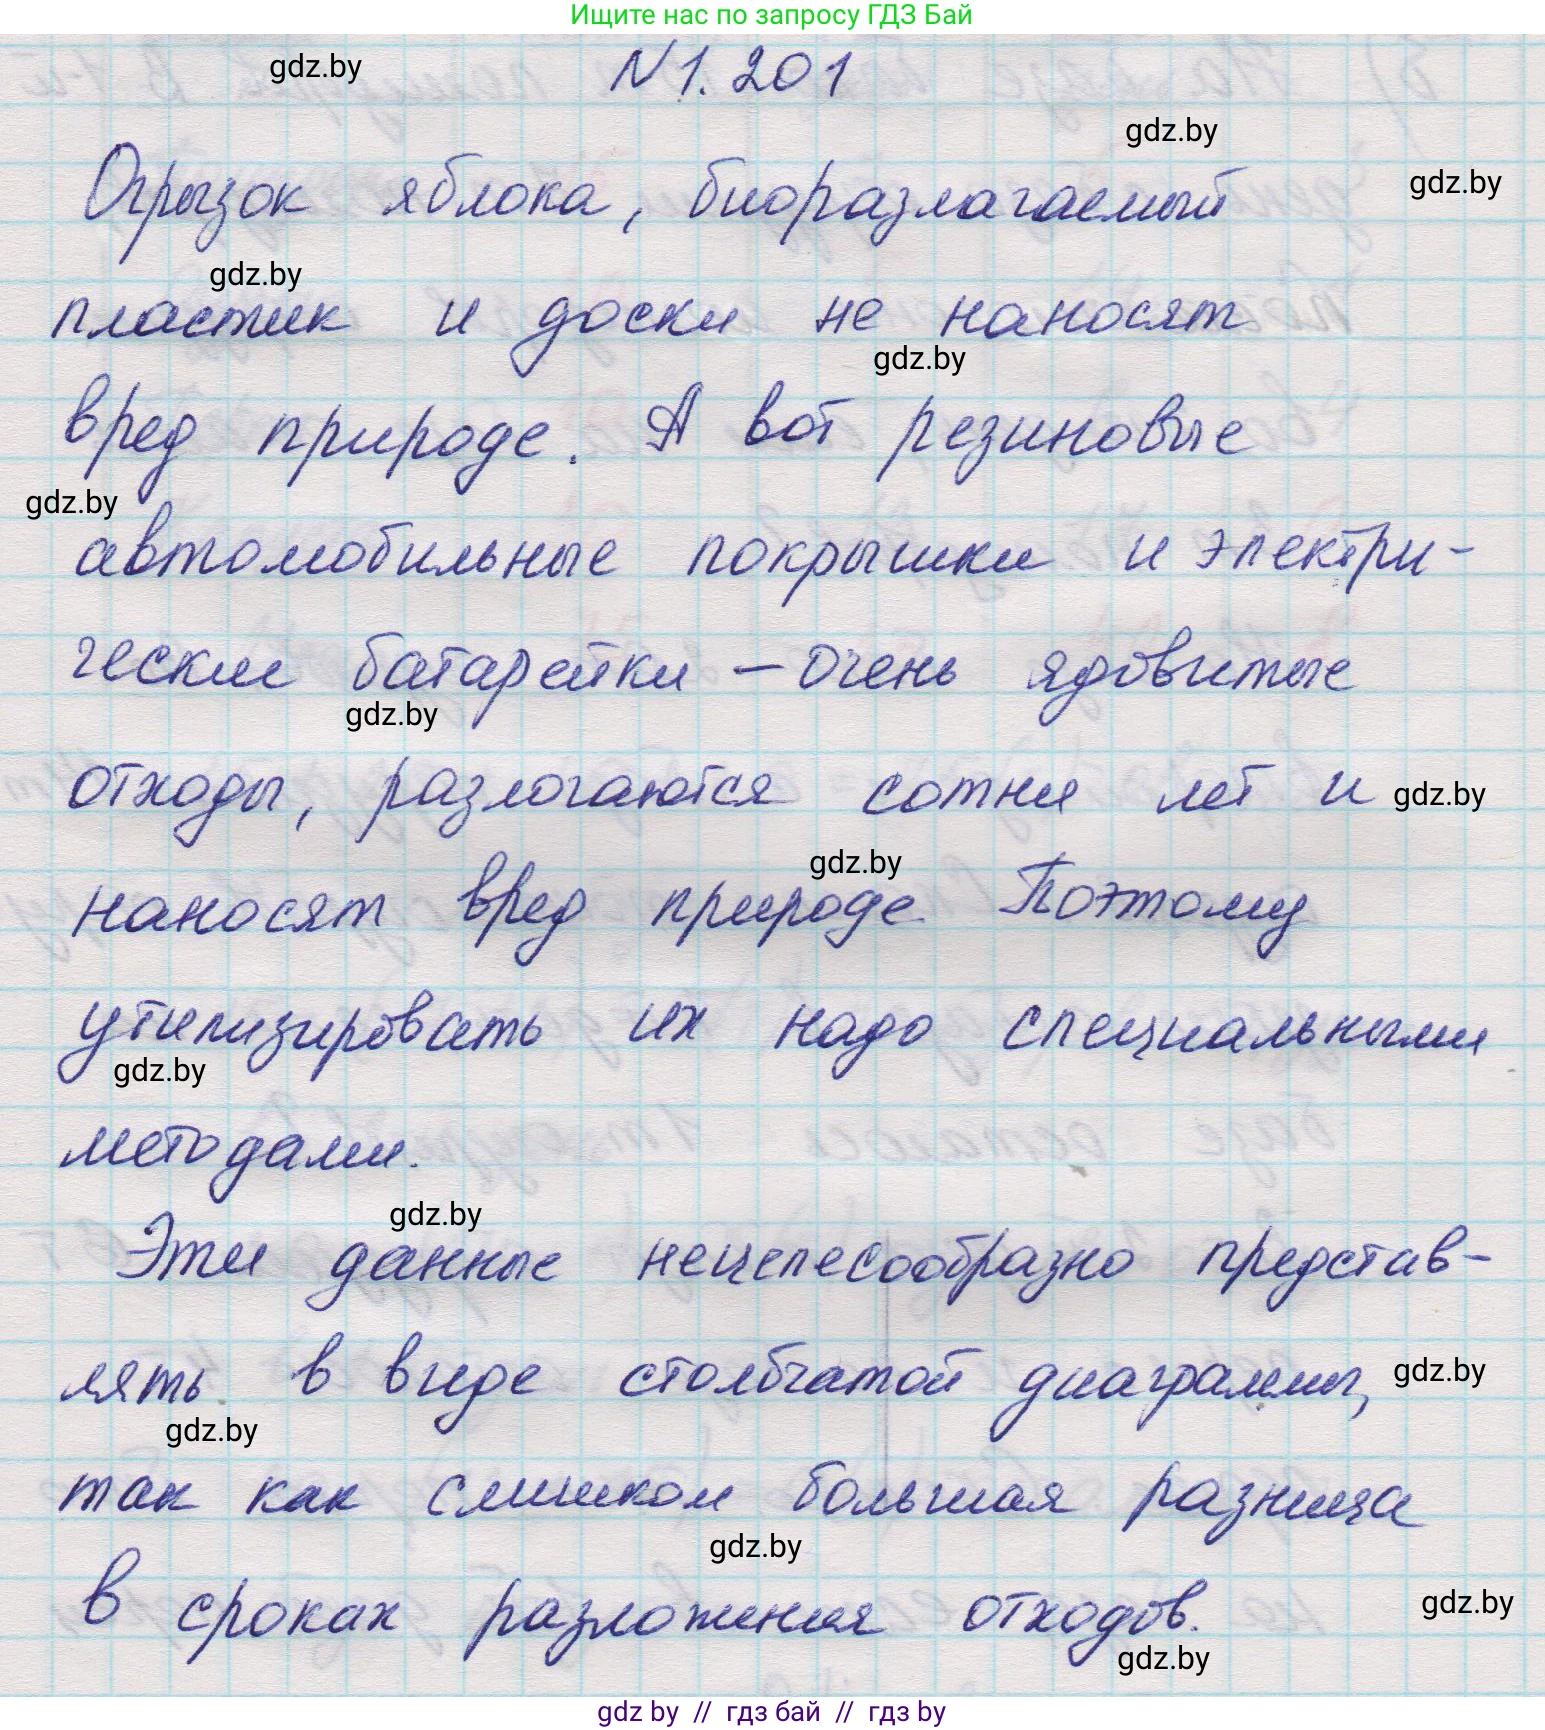 Ищите нас по запросу ГДЗ Бай
gdz.by
N 1. 201
gdz.by
Огрызок яблока, биоразлагаемый
gdz.by
gdz.by
пластик и доски не наносят
gdz.by
вред природе. А вот резиновые
gdz.by
автомобильные покрышки и электри-
ческие батарейки – очень ядовитые
gdz.by
отходы, разлогаются сотни лет и
gdz.by
gdz.by
наносят вред природе. Поэтому
утилизировать их надо специальными
gdz.by
методами.
gdz.by
Эти данные нецелесообразно представ-
лять в виде столбчатой диаграммы,
gdz.by
gdz.by
так как слишком большая разница
gdz.by
в сроках разложения отходов.
gdz.by
gdz.by
gdz by // гдз бай // гдз by